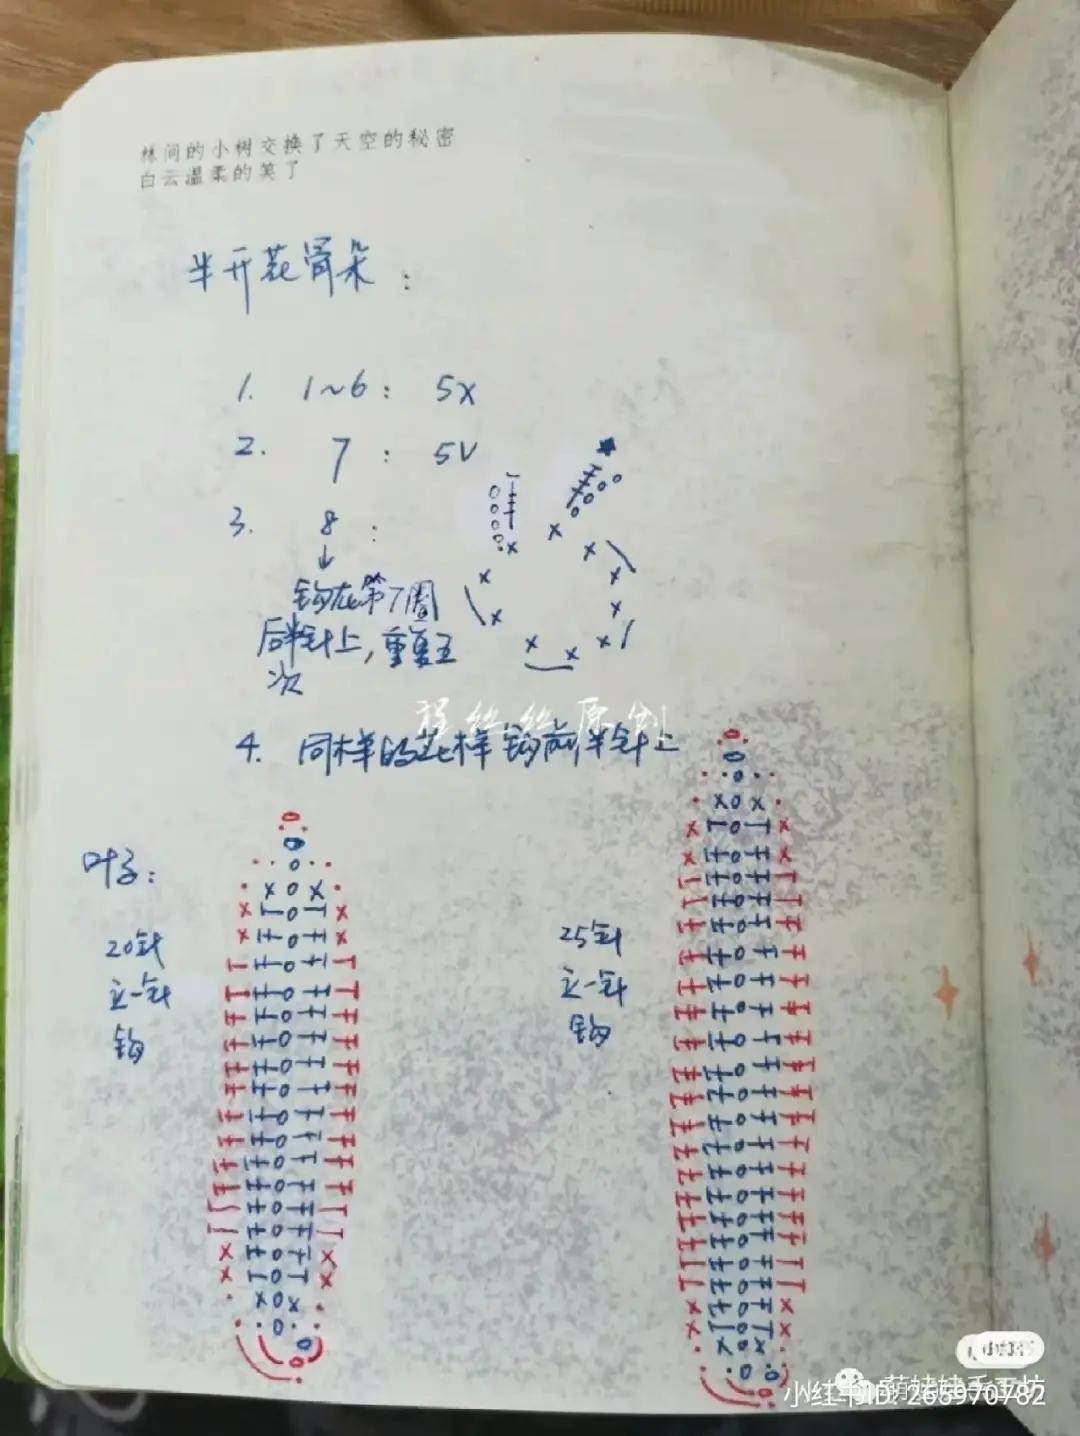 林间的小树交换了天空的秘密
白云温柔的笑了
半开花骨朵：
1. 1~6： 5X
2. 7： 5V
3. 8：
↓
钩在第7圈
后半针上，重复五
次
程丝丝原创
4. 同样的花样钩前半针上
叶子：
20针
立一针
钩
25针
立一针
钩
小红书
萌妹妹手工坊
小红书ID: 265970782